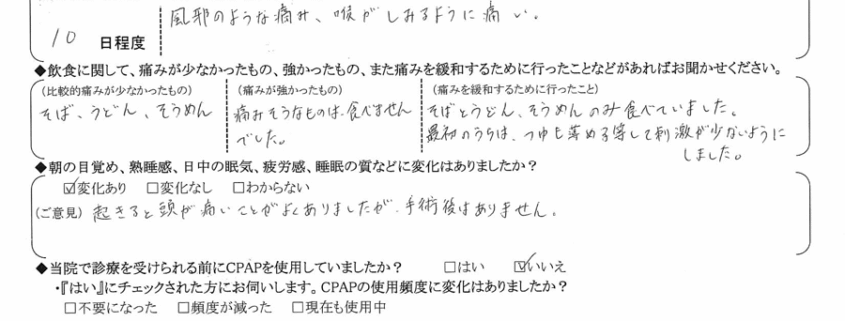 風邪のような痛み、喉がしみるように痛い。
10 日程度
◆飲食に関して、痛みが少なかったもの、強かったもの、また痛みを緩和するために行ったことなどがあればお聞かせください。
（比較的痛みが少なかったもの） （痛みが強かったもの） （痛みを緩和するために行ったこと）
そば、うどん、そうめん 痛みそうなものは、食べません そばとうどん、そうめんのみ食べていました。
でした。 最初のうちは、つゆも薄める等して刺激が少ないように
しました。
◆朝の目覚め、熟睡感、日中の眠気、疲労感、睡眠の質などに変化はありましたか？
☑変化あり □変化なし □わからない
（ご意見） 起きると頭が痛いことがよくありましたが、手術後はありません。
◆当院で診療を受けられる前にCPAPを使用していましたか？ □はい ☑いいえ
・『はい』にチェックされた方にお伺いします。CPAPの使用頻度に変化はありましたか？
□不要になった □頻度が減った □現在も使用中